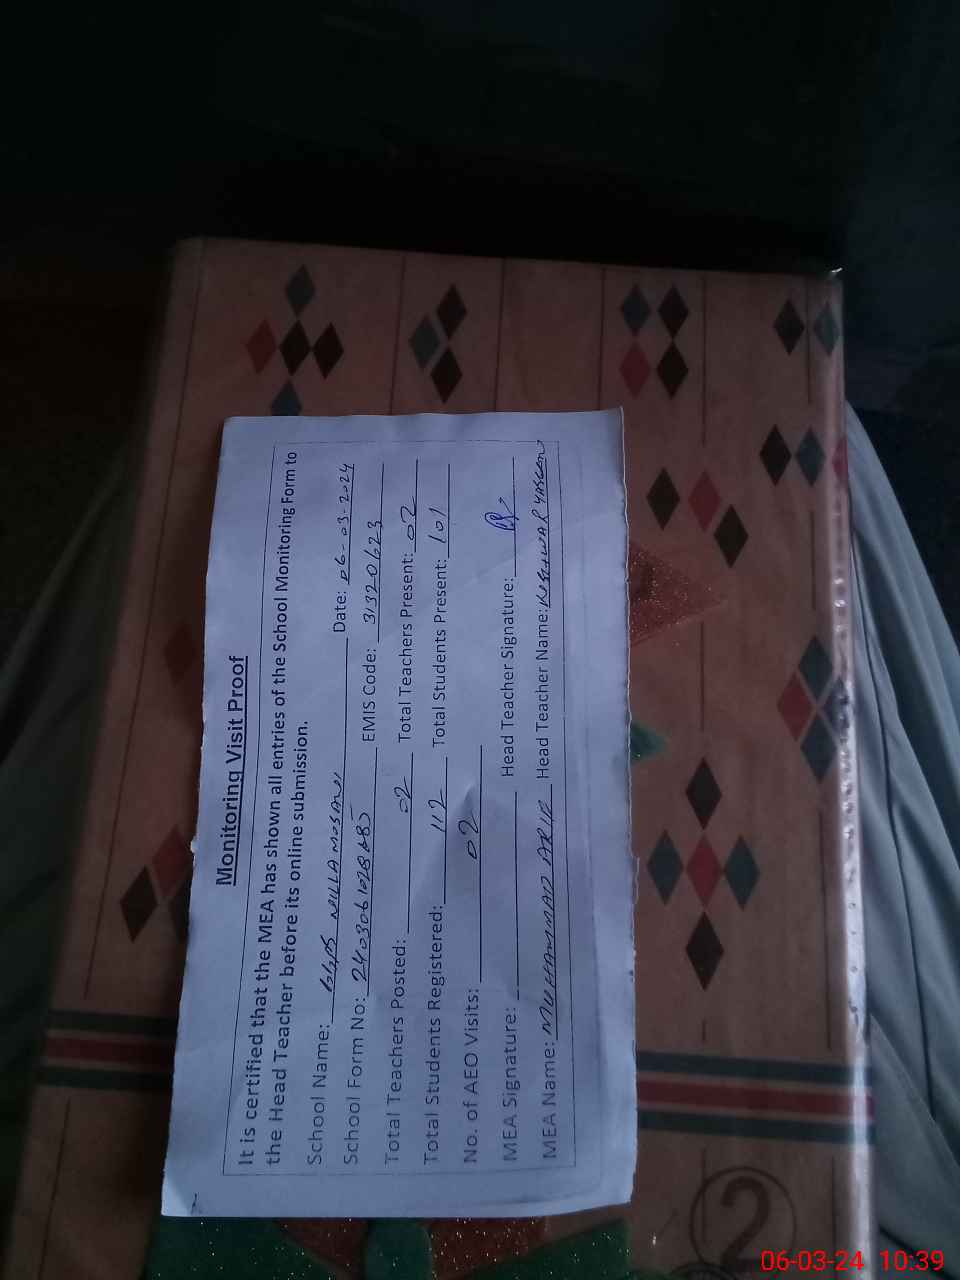 Monitoring Visit Proof
It is certified that the MEA has shown all entries of the School Monitoring Form to
the Head Teacher before its online submission.
School Name: Date: 06-03-2024
School Form No: EMIS Code: 31320623
Total Teachers Posted: 02 Total Teachers Present: 02
Total Students Registered: 112 Total Students Present: 101
No. of AEO Visits: 02
MEA Signature: Head Teacher Signature:
MEA Name: MUHAMMAD ARIF Head Teacher Name: YASEEN
2
06-03-24 10:39